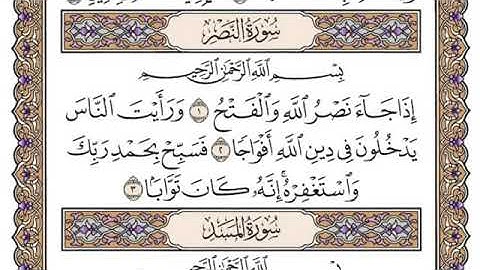 سُورَةُ النَّصْرِ
بِسْمِ اللَّهِ الرَّحْمَٰنِ الرَّحِيمِ
إِذَا جَآءَ نَصْرُ اللَّهِ وَالْفَتْحُ ١ وَرَأَيْتَ النَّاسَ
يَدْخُلُونَ فِي دِينِ اللَّهِ أَفْوَاجًا ٢ فَسَبِّحْ بِحَمْدِ رَبِّكَ
وَاسْتَغْفِرْهُ ۚ إِنَّهُۥ كَانَ تَوَّابًۢا ٣
سُورَةُ الْمَسَدِ
بِسْمِ اللَّهِ الرَّحْمَٰنِ الرَّحِيمِ